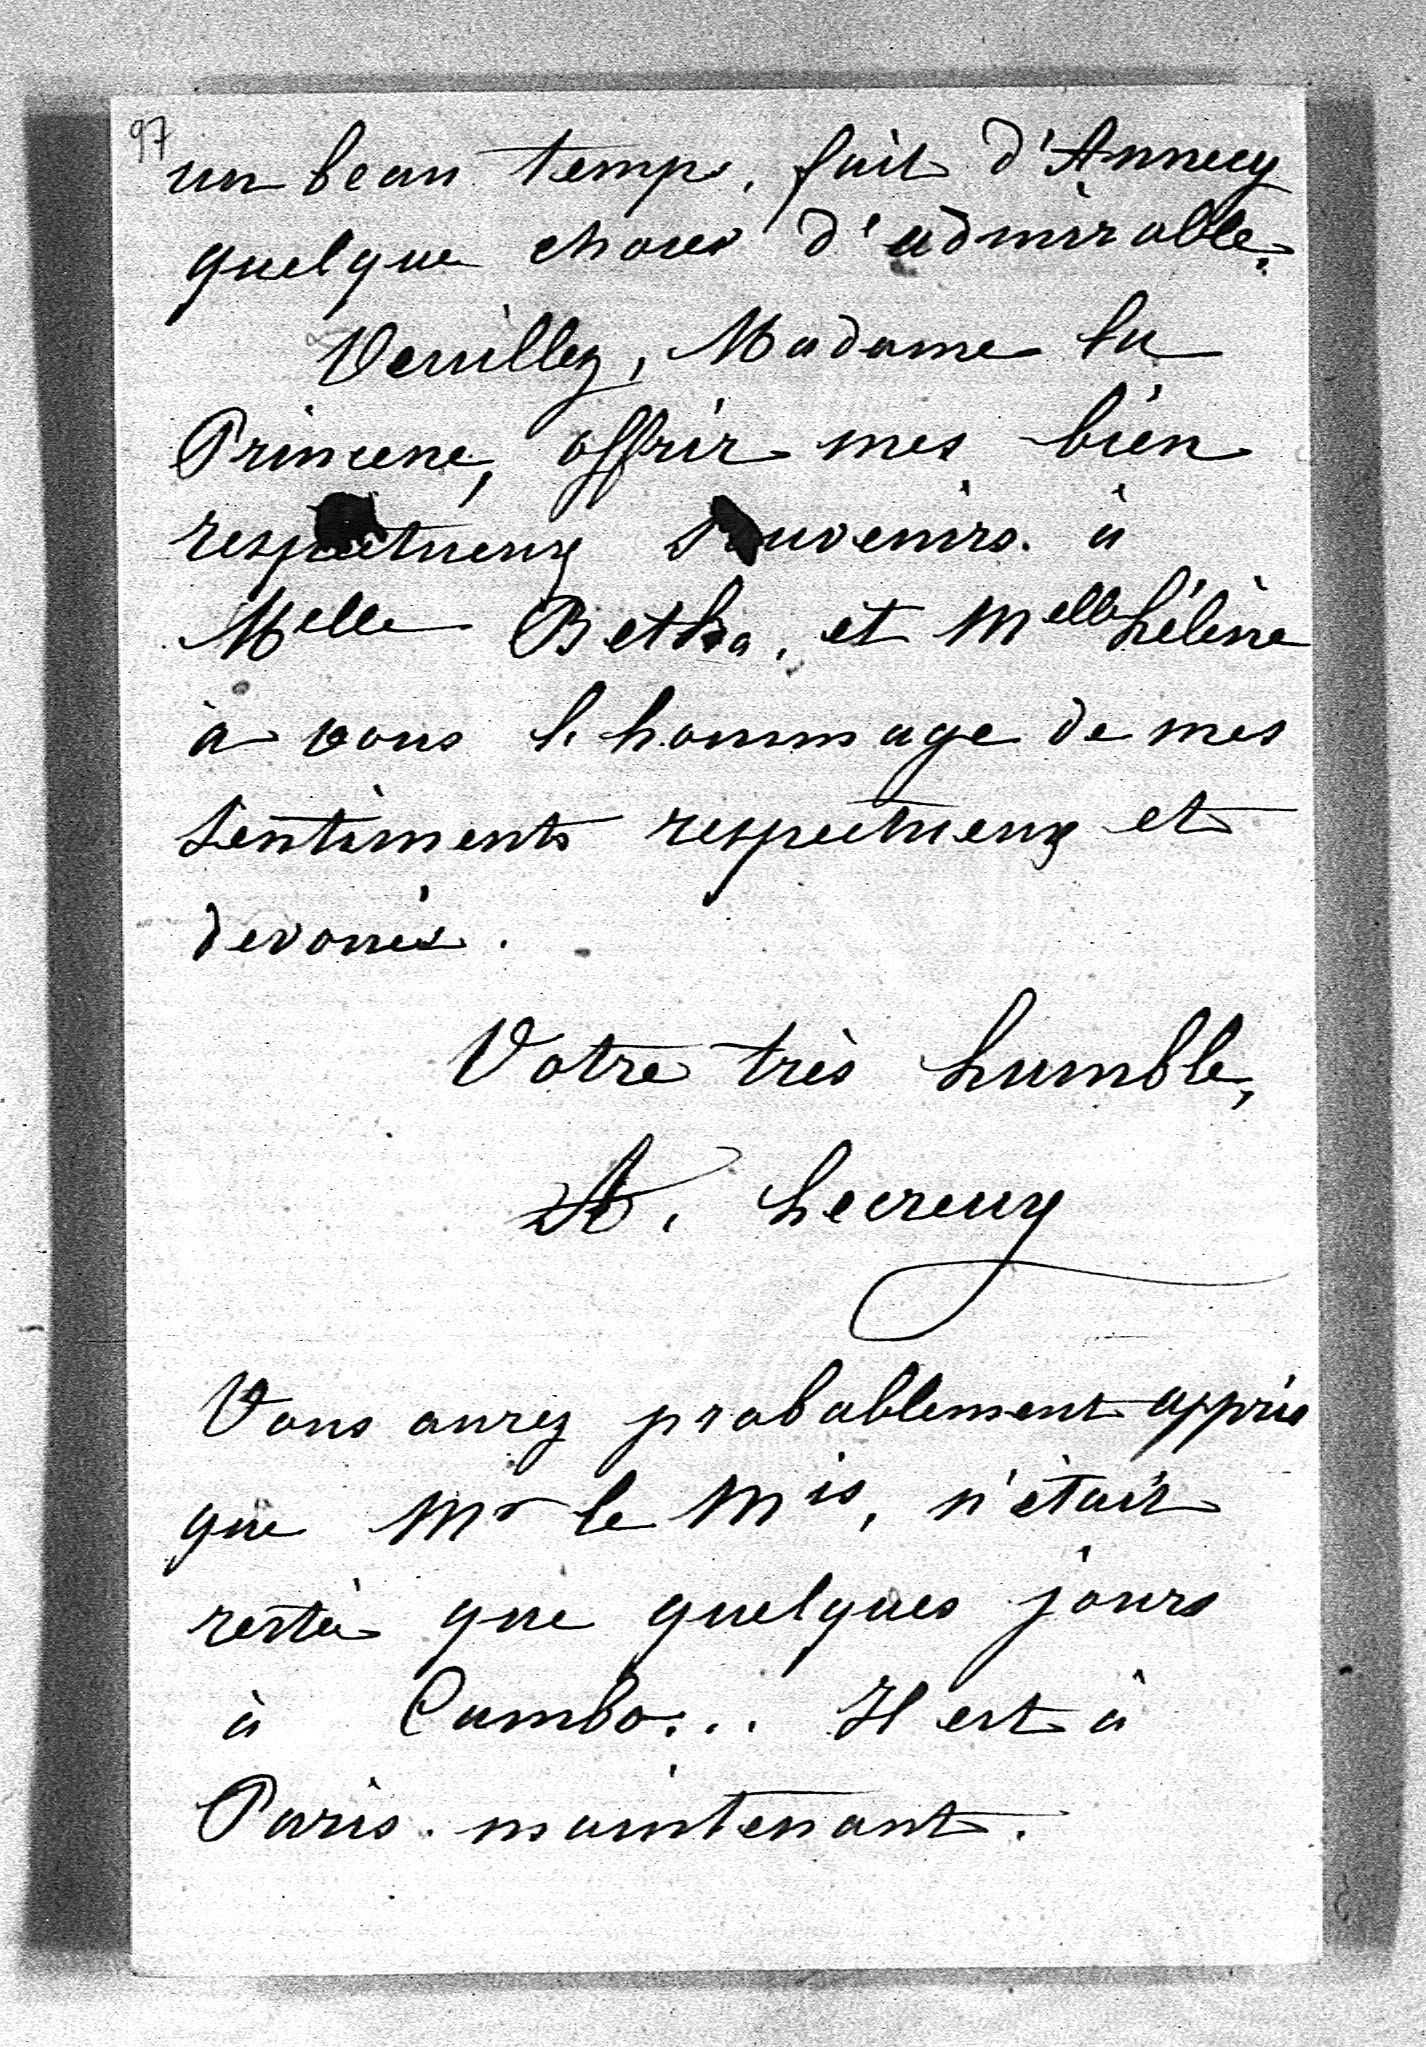 97
un beau temps, fait d'Annecy
quelque choses d'admirable.
Veuillez, Madame la
Princesse, offrir mes bien
respectueux souvenirs à
Melle Betka, et Melle hélène
à vous l'hommage de mes
sentiments respectueux et
devoués.
Votre très humble,
A. Lecreux
Vous aurez probablement appris
que Mr le Mis, n'était
resté que quelques jours
à Cambo... Il est à
Paris maintenant.